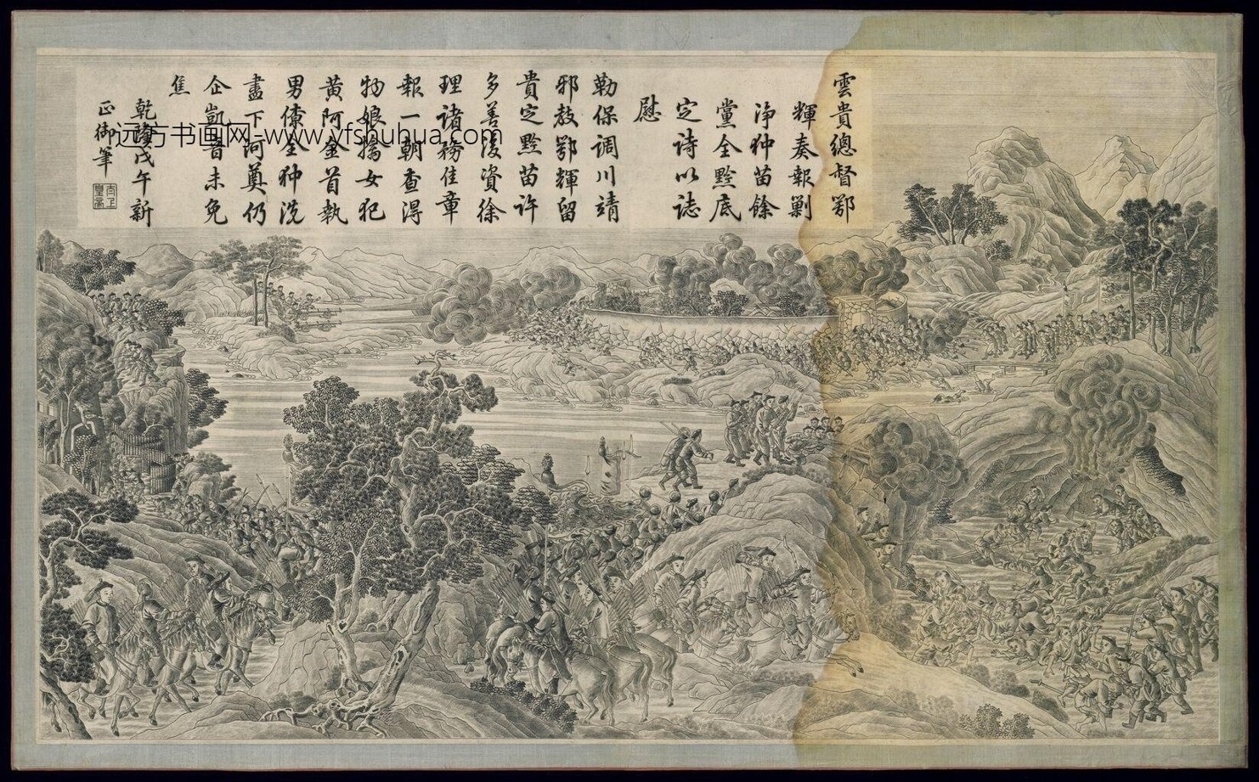 雲貴總督鄂
輝奏報剿
淨狆苗餘
黨全黔底
定詩以誌
慰
勒保调川靖
邪教鄂輝留
貴定黔苗許
多善後資徐
理諸務佳章
報一朝查淂
物娘擒女犯
黄阿金首執
男全狆洗
盡下河奠仍
企凱音未免
焦
乾隆戊午新
正御筆
远方书画网-www.yfshuhua.com